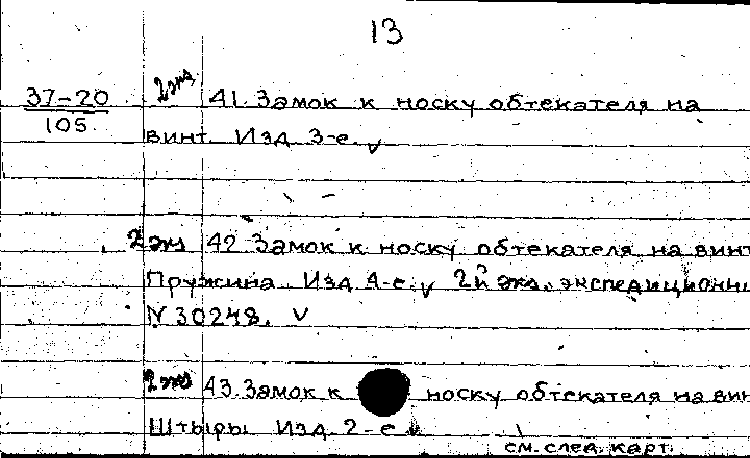 13
37-20 2 экз 41. Замок к носку обтекателя на
105 винт. Изд. 3-е. v
2 экз 42 Замок к носку обтекателя на винт
Пружина. Изд. 4-е. v 2й экз. экспедиционны
N 30248. v
2 экз 43. Замок к носку обтекателя на вин
Штыры Изд. 2-е v
см. след. карт.